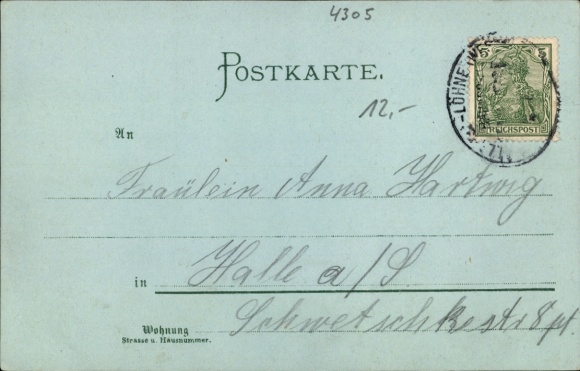 4305
POSTKARTE.
12,-
5 5
REICHSPOST
LÖHNE
An
Fräulein Anna Hartwig
in Halle a/S
Wohnung
Strasse u. Hausnummer.
Schwetschkestr 8 pt.